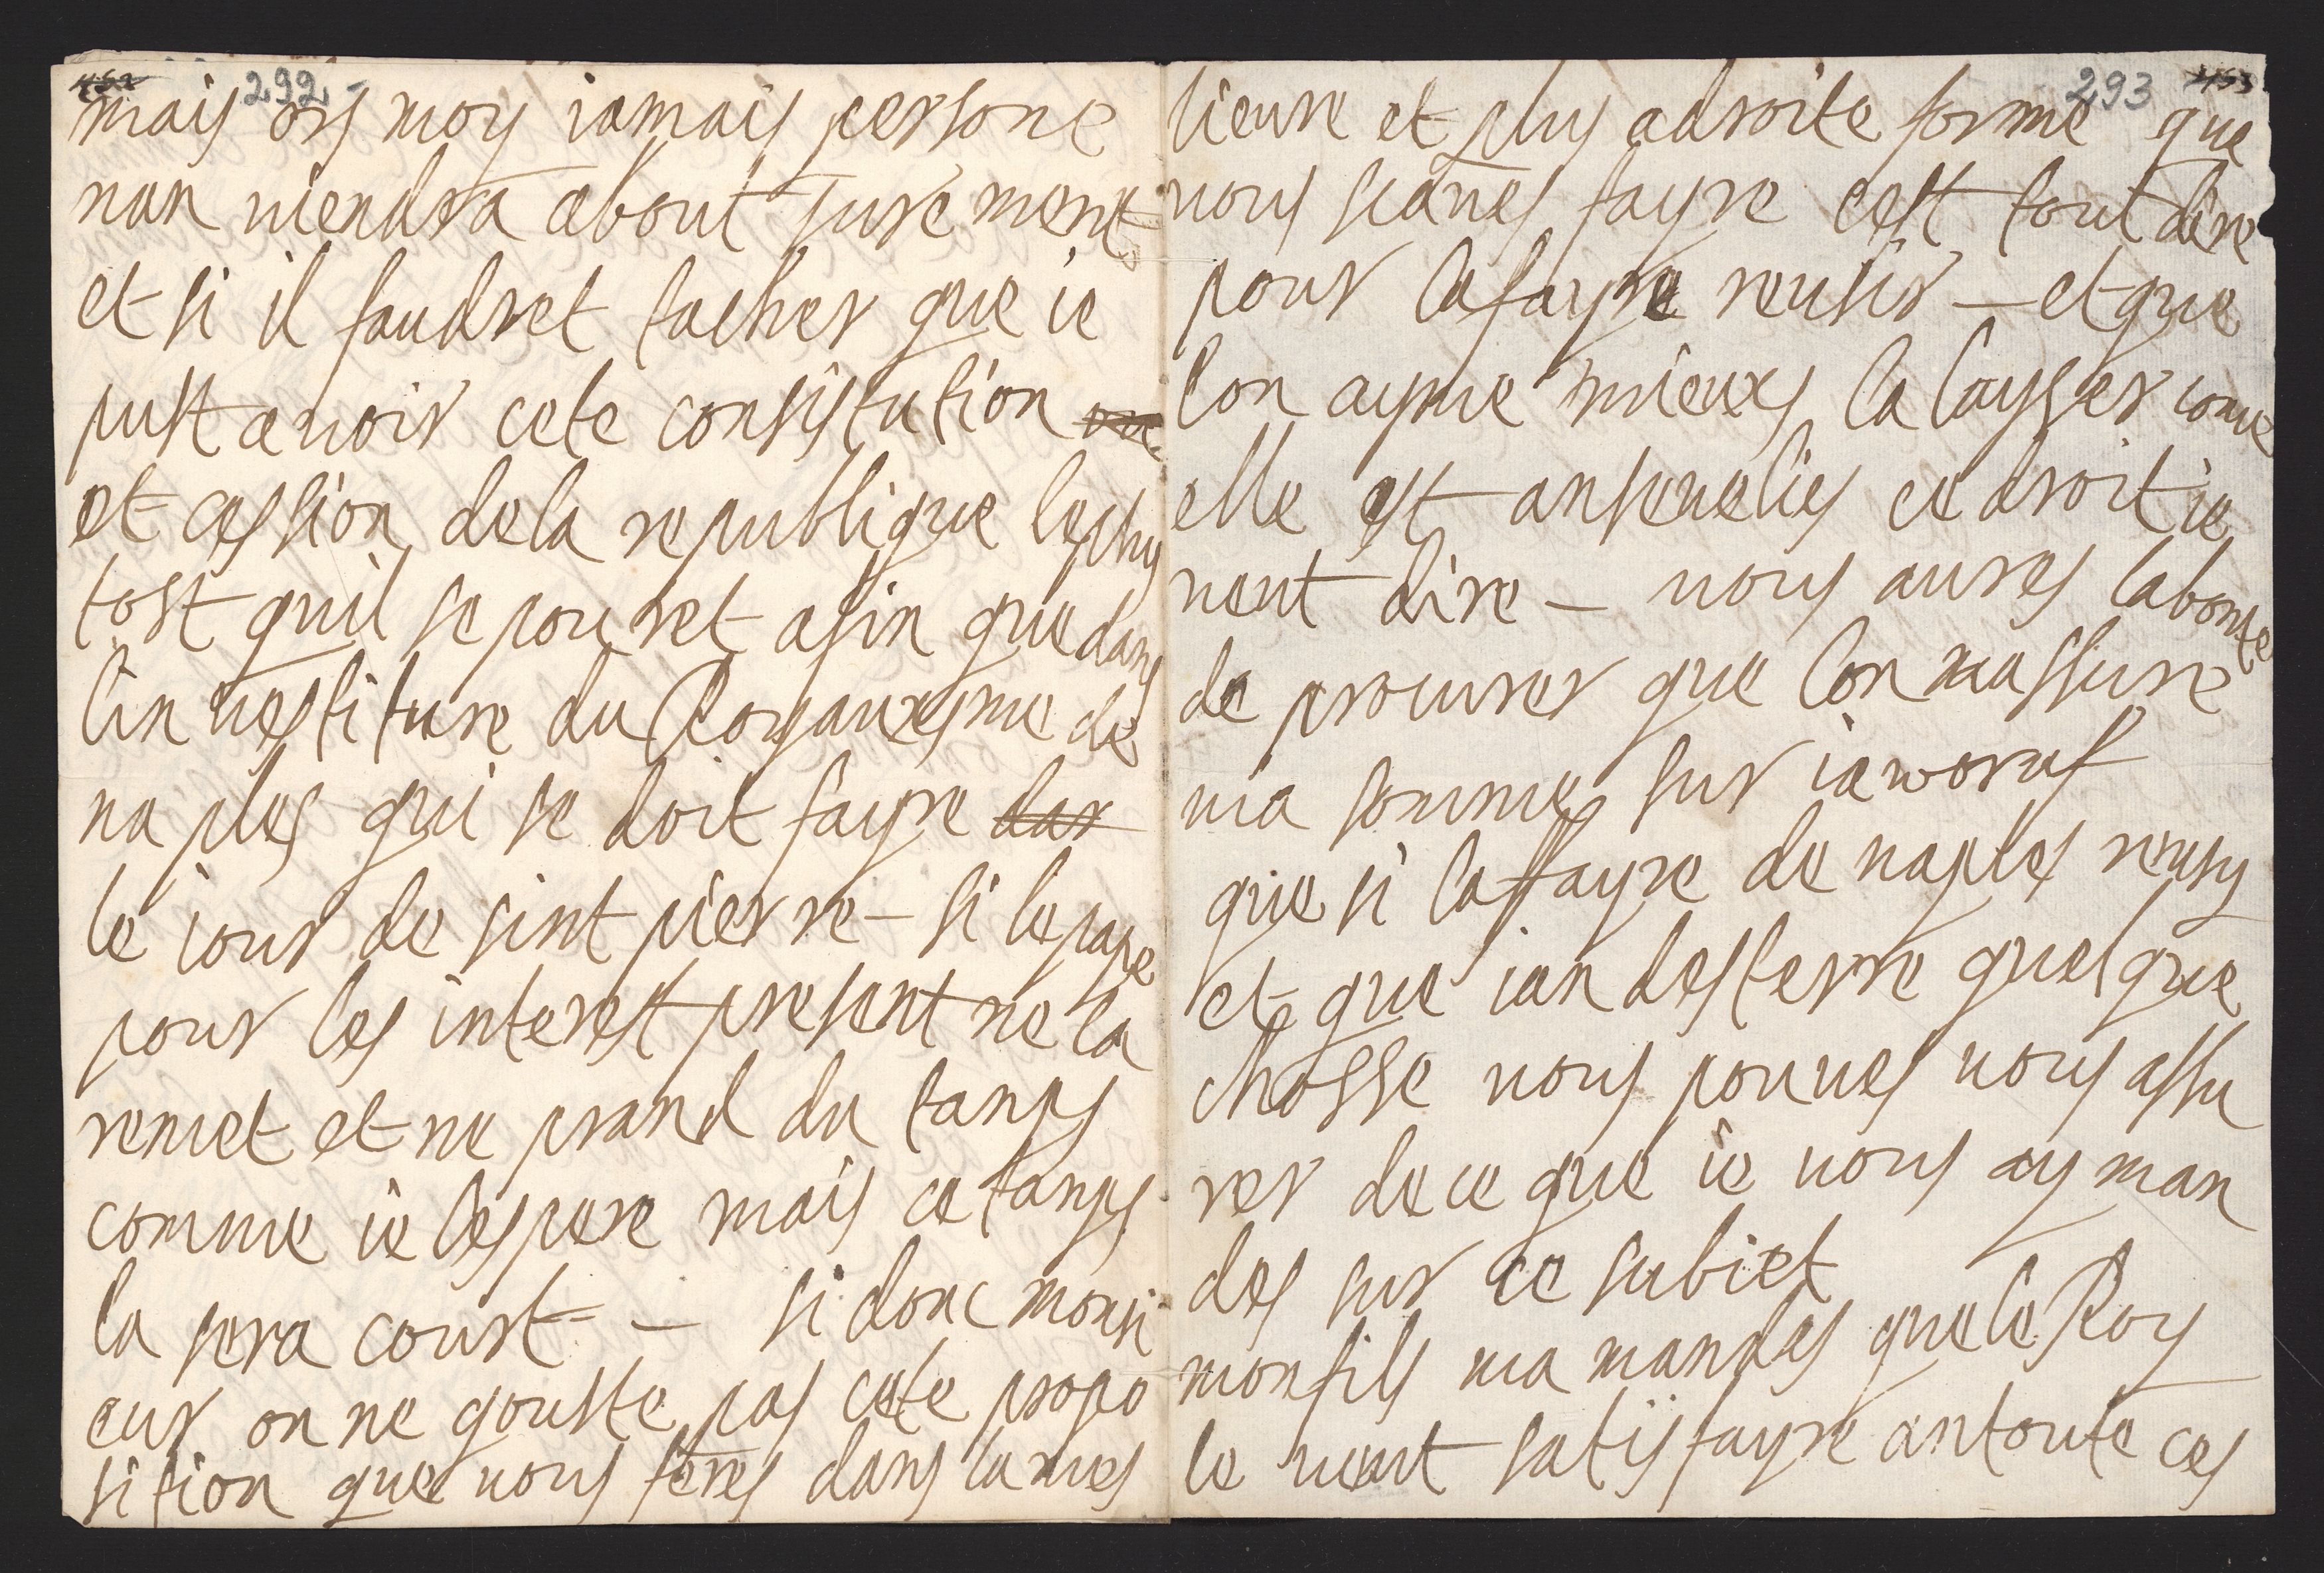 292
mais ors moy iamais persone
nan viendra about surement
et si il faudret tacher que ie
pust avoir cete consistution
et cession dela republique leplus
tost quil se pouret afin que dans
lin vestiture du Royauxsme de
naples qui se doit fayre
le iour de sint pierre – si lepape
pour les interest present ne la
remet et ne prand du tanps
comme ie lespere mais ce tanps
la sera court – si donc monsi
eur on ne gouste pas cete propo
sition que vous feres dans la mes
293
lieure et plus adroite forme que
vous scaves fayre cest tout dire
pour lafayre reusir – et que
lon ayme mieuxs la laysser come
elle est ansevelies ce droit ie
veut dire – vous aures labonte
de procurer que lon massure
ma somme sur iaworuf
que si laffayre de naples reusy
et que ian desterre quelque
chosse vous pouves vous assu
rer de ce que ie vous ay man
des sur ce subiet
monfils ma mandes que le Roy
le veut satisfayre antoute ces